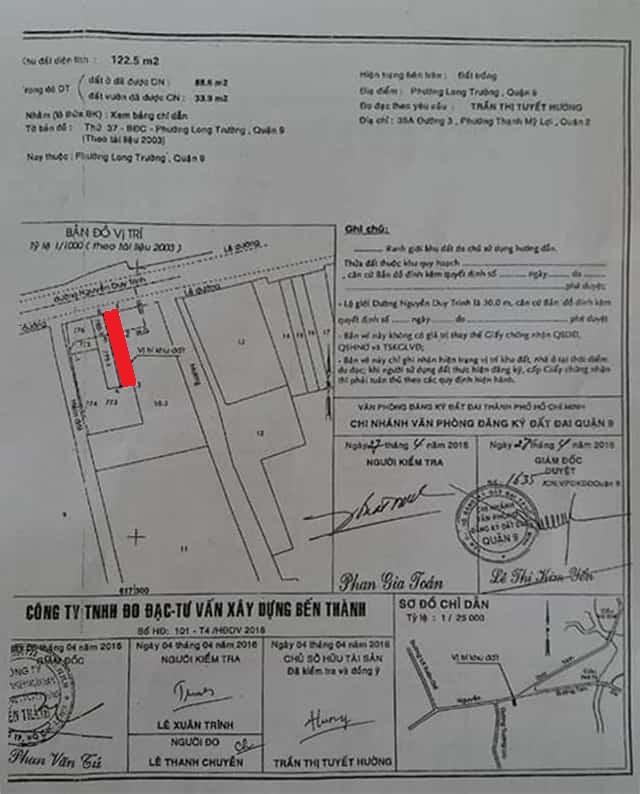 Chủ đất diện tích : 122.5 m2
trong đó DT
đất ở đã được CN : 88.6 m2
đất vườn đã được CN : 33.9 m2
Nhằm (lô thửa BK) : Xem bảng chỉ dẫn
Tờ bản đồ : Thứ 37 - BĐC - Phường Long Trường , Quận 9
(Theo tài liệu 2003)
Nay thuộc : Phường Long Trường , Quận 9
Hiện trạng bên trên : Đất trống
Địa điểm : Phường Long Trường , Quận 9
Đo đạc theo yêu cầu : TRẦN THỊ TUYẾT HƯỜNG
Địa chỉ : 35A Đường 3 , Phường Thạnh Mỹ Lợi , Quận 2
BẢN ĐỒ VỊ TRÍ
Tỷ lệ 1/1000 ( theo tài liệu 2003 )
Lề đường
đường Nguyễn Duy Trinh
Lề đường
đường
776
Vị trí khu đất
774
773
Mương
12
12
14
15
16
17
9
11
617/300
Ghi chú:
Ranh giới khu đất do chủ sử dụng hướng dẫn.
Thửa đất thuộc khu quy hoạch
, căn cứ Bản đồ đính kèm quyết định số ngày do
phê duyệt
- Lộ giới Đường Nguyễn Duy Trinh là 30.0 m, căn cứ Bản đồ đính kèm
quyết định số ngày do phê duyệt
- Bản vẽ này không có giá trị thay thế Giấy chứng nhận QSDĐ,
QSHNỞ và TSKGLVĐ;
- Bản vẽ này chỉ ghi nhận hiện trạng vị trí khu đất, nhà ở tại thời điểm
đo đạc; khi người sử dụng đất thực hiện đăng ký, cấp Giấy chứng nhận
thì phải tuân thủ theo các quy định hiện hành.
VĂN PHÒNG ĐĂNG KÝ ĐẤT ĐAI THÀNH PHỐ HỒ CHÍ MINH
CHI NHÁNH VĂN PHÒNG ĐĂNG KÝ ĐẤT ĐAI QUẬN 9
Ngày 27 tháng 4 năm 2016
NGƯỜI KIỂM TRA
Phan Gia Toán
Ngày 27 tháng 4 năm 2016
GIÁM ĐỐC
DUYỆT
Số: 1635 /CN.VPĐKĐĐQuận9
CHI NHÁNH
VĂN PHÒNG
ĐĂNG KÝ ĐẤT ĐAI
QUẬN 9
Lê Thị Kim Yến
CÔNG TY TNHH ĐO ĐẠC-TƯ VẤN XÂY DỰNG BẾN THÀNH
Số HĐ: 101 - T4 /HĐDV 2016
04 tháng 04 năm 2016
GIÁM ĐỐC
Phan Văn Tú
Ngày 04 tháng 04 năm 2016
NGƯỜI KIỂM TRA
LÊ XUÂN TRÌNH
NGƯỜI ĐO
LÊ THANH CHUYỀN
Ngày 04 tháng 04 năm 2016
CHỦ SỞ HỮU TÀI SẢN
Đã kiểm tra và đồng ý
TRẦN THỊ TUYẾT HƯỜNG
SƠ ĐỒ CHỈ DẪN
Tỷ lệ : 1 / 25 000
Vị trí khu đất
Nguyễn
Duy
Trinh